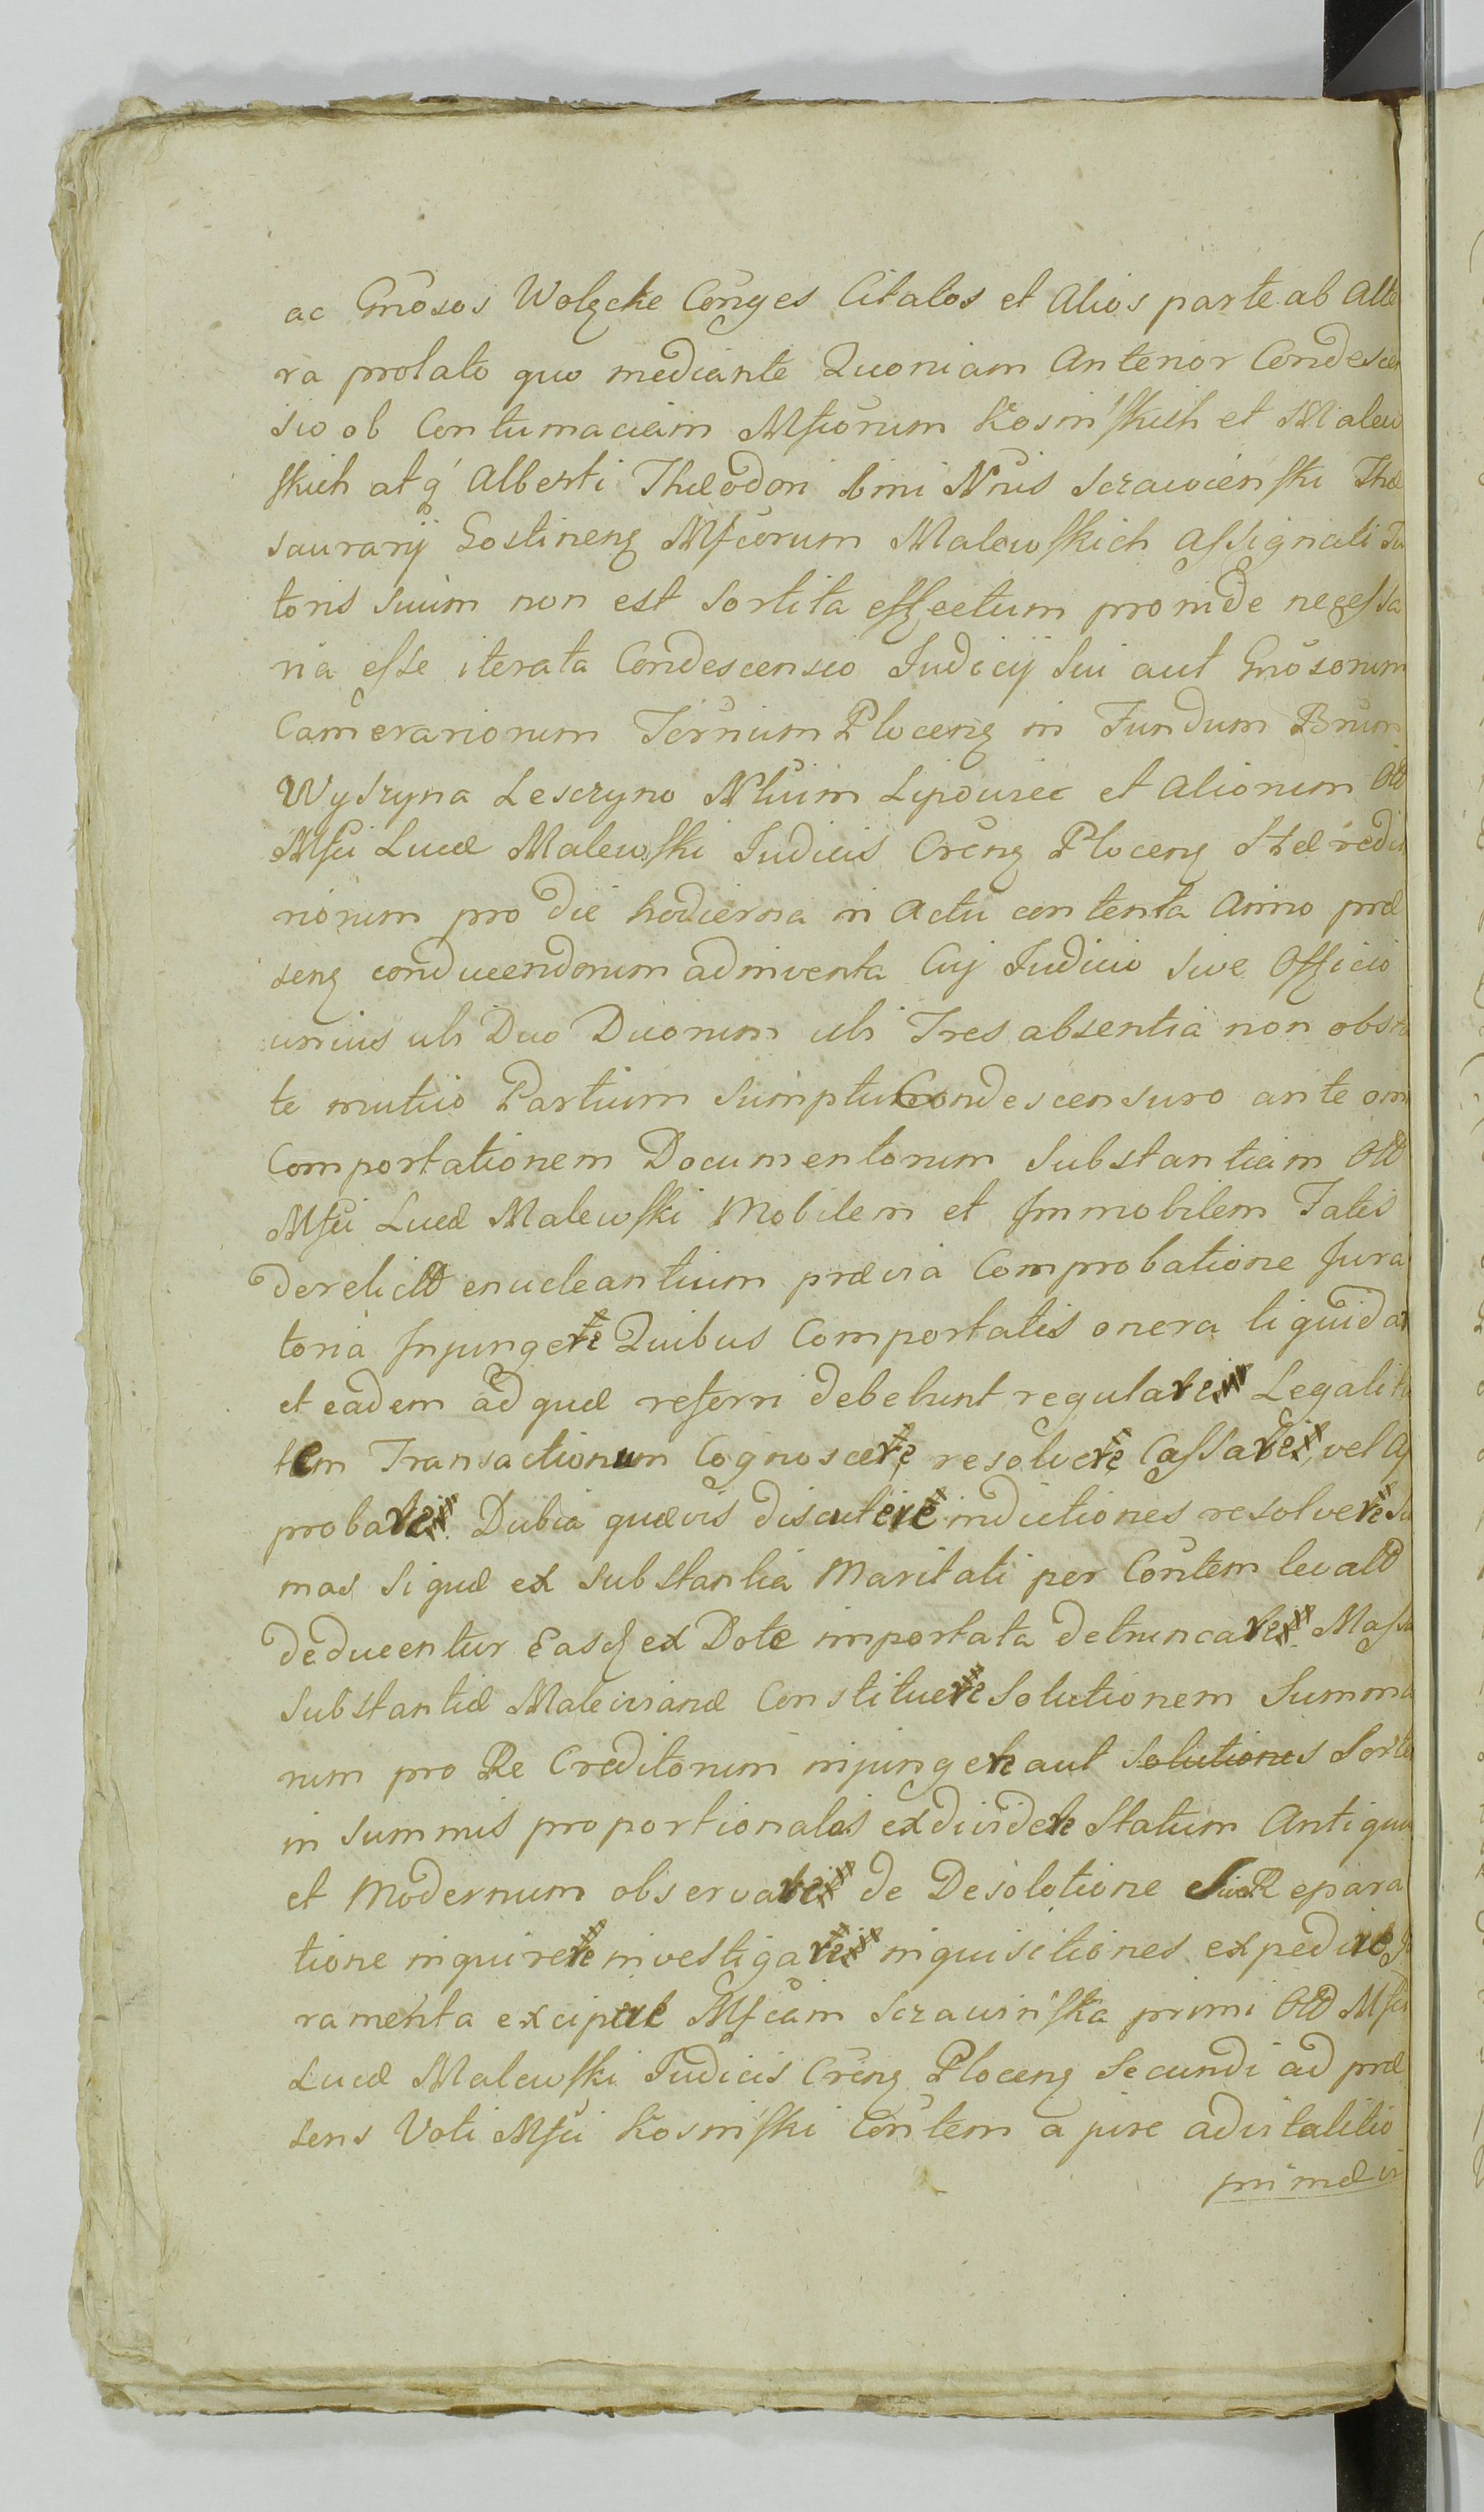 ac Gnosos Wolscke Cönges Citatos et Alios parte ab Alte
ra prolato quo mediante Quoniam Anterior Condescen
sio ob Contumaciam Mſcorum Kosinſkich et Malew
ſkich atq Alberti Theodori bini Nnis Szrawienſki The
saurarij Gostinens Mſcorum Malewſkich aſsignati Tu
toris Suum non est Sortita effectum proinde neceſsa
ria eſse iterata Condescensio Judicij Sui aut Gnosorum
Camerariorum Terrium Plocens in Fundum Bnum
Wyszyna Lesczyno Nluim Lipowiec et aliorum Old
Mſci Lucæ Malewſki Judicis Crens Plocens Hæredita
riorum pro die hodierna in Actu contenta Anno præ
sens conducendorum adinventa Cuj Judicio Sive Officio
unius ubi Duo Duorum ubi Tres absentia non obsta
te mutuo Partium Sumptu Condescensuro ante om
Comportationem Documentorum Substantiam Old
Mſci Lucæ Malewſki Mobilem et Immobilem Fatis
derelicta enucleantium prævia Comprobatione Jura
toria Injungere Quibus Comportatis onera liquidar
et eadem ad quæ referri debebunt regulare Legalita
tem Transactionum Cognoscere resolvere Caſsare vel Ap
probare Dubia quævis discutere indictiones resolvere Su
mas Si quæ ex Substantia Maritati per Contem levatæ
deducentur Easq ex Dote importata detruncare Maſsa
Substantiæ Malewianæ Constituere Solutionem Summa
rum pro Re Creditorum injungere aut Solutiones Sorte
in Summis proportionalas exdividere Statum Antiquu
et Modernum observare de Desolatione Sive Repara
tione inquirere investigare inquisitiones expedire Ju
ramenta excipere Mſcam Szrawinſka primi Old Mſci
Lucæ Malewſki Judicis Crens Plocens Secundi ad præ
sens Voti Mſci Kosinſki Contem a jure advitalitio
primæ vi